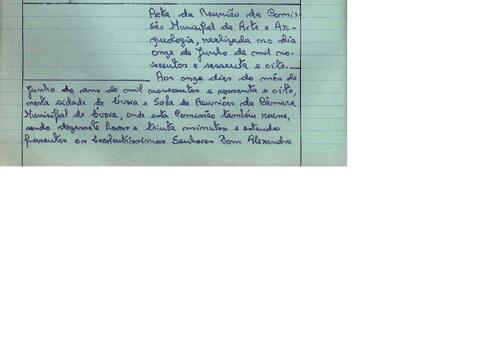 Acta da Reunião da Comis-
são Municipal de Arte e Ar-
queologia, realizada no dia
onze de Junho de mil no-
vecentos e sessenta e oito.
Aos onze dias do mês de
Junho do ano de mil novecentos e sessenta e oito,
nesta cidade de Évora e Sala de Reuniões da Câmara
Municipal de Évora, onde esta Comissão também reune,
sendo dezassete horas e trinta minutos e estando
presentes os Excelentíssimos Senhores Dom Alexandre